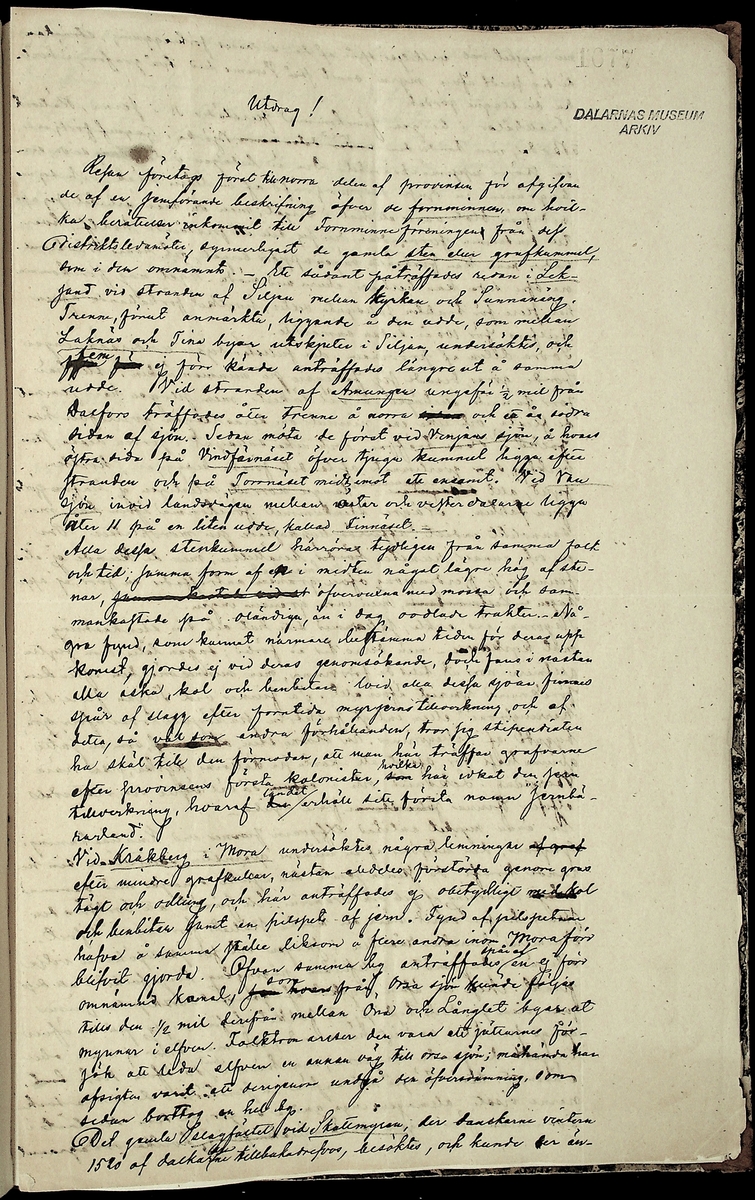 Utdrag!
DALARNAS MUSEUM
ARKIV
Resan företogs först till norra delen af provinsen för afgifvan
de af en jemförande beskrifning öfver de fornminnen, om hvil-
ka berättelser inkommit till Fornminneföreningen från dess
Distriktsledamöter, synnerligast de gamla sten eller grafkummel,
som i den omnämnts. – Ett sådant påträffades redan i Lek-
sand vid stranden af Siljan mellan kyrkan och Sunnanäng.
Trenne, förut anmärkta, liggande å den udde, som mellan
Laknäs och Tina byar utskjuter i Siljan, undersöktes, och
fem ej förr kända anträffades längre ut å samma
udde. Vid stranden af Amungen ungefär ½ mil från
Dalfors träffades åter trenne å norra och en å södra
sidan af sjön. Sedan möta de först vid Venjans sjön, å hvars
östra sida på Vindförnäset öfver tjugu kummel ligga efter
stranden och på Torrnäset midtemot ett ensamt. Vid Van
sjön invid landsvägen mellan öster och vesterdalarne ligga
åter 11 på en liten udde, kallad Finnäset. –
Alla dessa stenkummel härröra tydligen från samma folk
och tid; samma form af en i midten något lägre hög af ste-
nar, öfvervuxna med mossa och sam-
mankastade på oländiga, än i dag oodlade trakter. – Nå-
gra fynd, som kunnat närmare bestämma tiden för deras upp
komst, gjordes ej vid deras genomsökande, dock fans i nästan
alla aska, kol och benbitar. Wid alla dessa sjöar finnas
spår af slagg efter forntida myrjernstillverkning och af
detta, så väl som andra förhållanden, tror sig stipendiaten
ha skäl till den förmodan, att man här träffar grafvarne
efter provinsens första kolonister, hvilka här idkat den jern
tillverkning, hvaraf landet erhöll sitt första namn "Jernbä-
raland".
Vid Kråkberg i Mora undersöktes några lemningar
efter mindre grafkullar, nästan alldeles förstörda genom grus
tägt och odling, och här anträffades ej obetydligt kol
och benbitar samt en pilspets af jern. Fynd af pilspetsar
hafva å samma ställe liksom å flere andra inom Mora förr
blifvit gjorda. Ofvan samma by anträffades en ej förr
omnämnd kanal, som från Orsa sjön kunde följas
till den ½ mil derifrån mellan Ona och Långlet byar at
mynnar i elfven. Folktron anser den vara ett jättarnes för-
sök att leda elfven en annan väg till orsa sjön; måhända har
afsigten varit att derigenom undgå den öfversvämning, som
sedan borttog en hel by.
Det gamla slagfältet vid Skattemyran, der danskarne vintern
1520 af dalkarlne tillbakadrefvos, besöktes, och kunde der än-